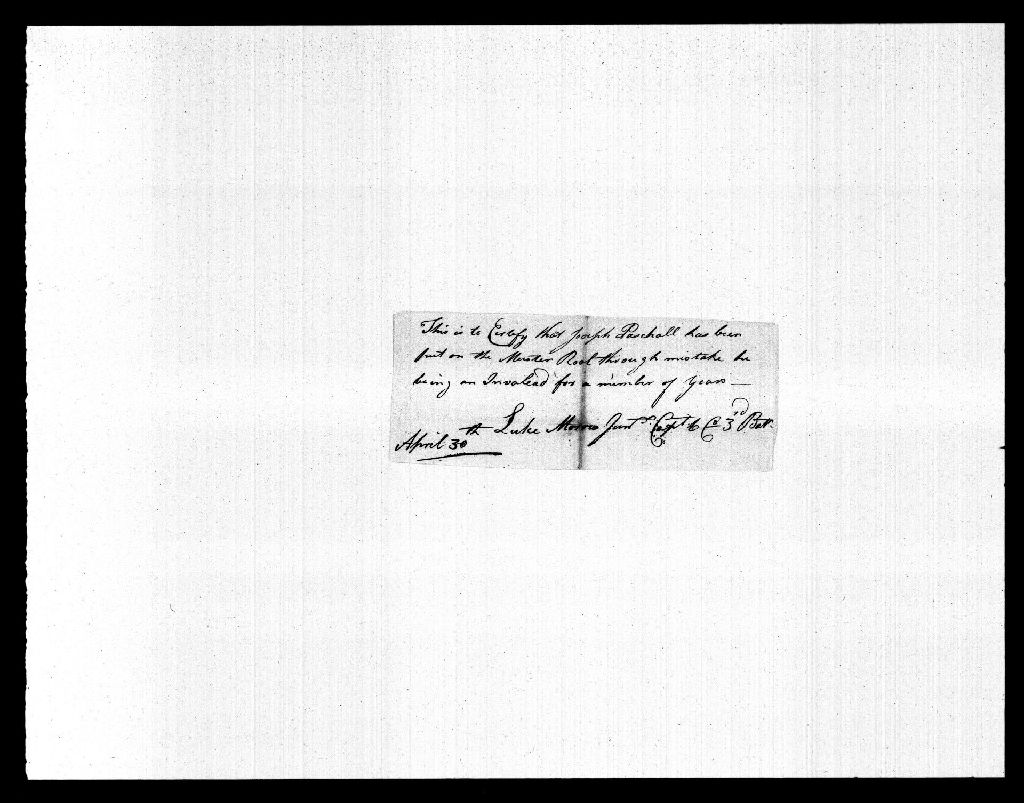 This is to Certify that Joseph Paschall has been
put on the Muster Rool through mistake he
being an Invalead for a number of Years —
Luke Morris Junr Capt 6 Co 3rd Bat.
April 30th